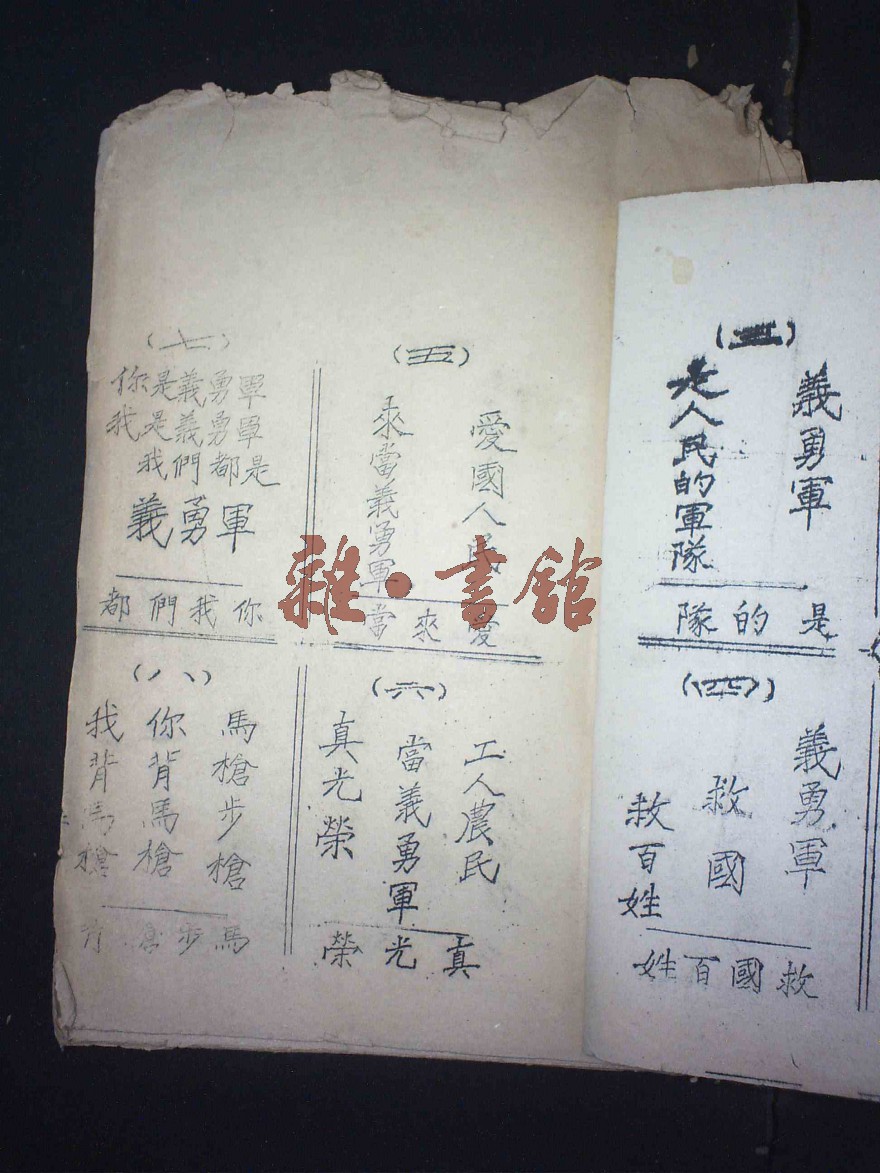 （三）
義勇軍
是人民的軍隊
是的隊
（四）
義勇軍
救國
救百姓
救國百姓
（五）
愛國人民
來當義勇軍
愛來當
（六）
工人農民
當義勇軍
真光榮
真光榮
（七）
你是義勇軍
我是義勇軍
我們都是
義勇軍
你我們都
（八）
馬槍步槍
你背馬槍
我背馬槍
馬步槍背
雜·書館